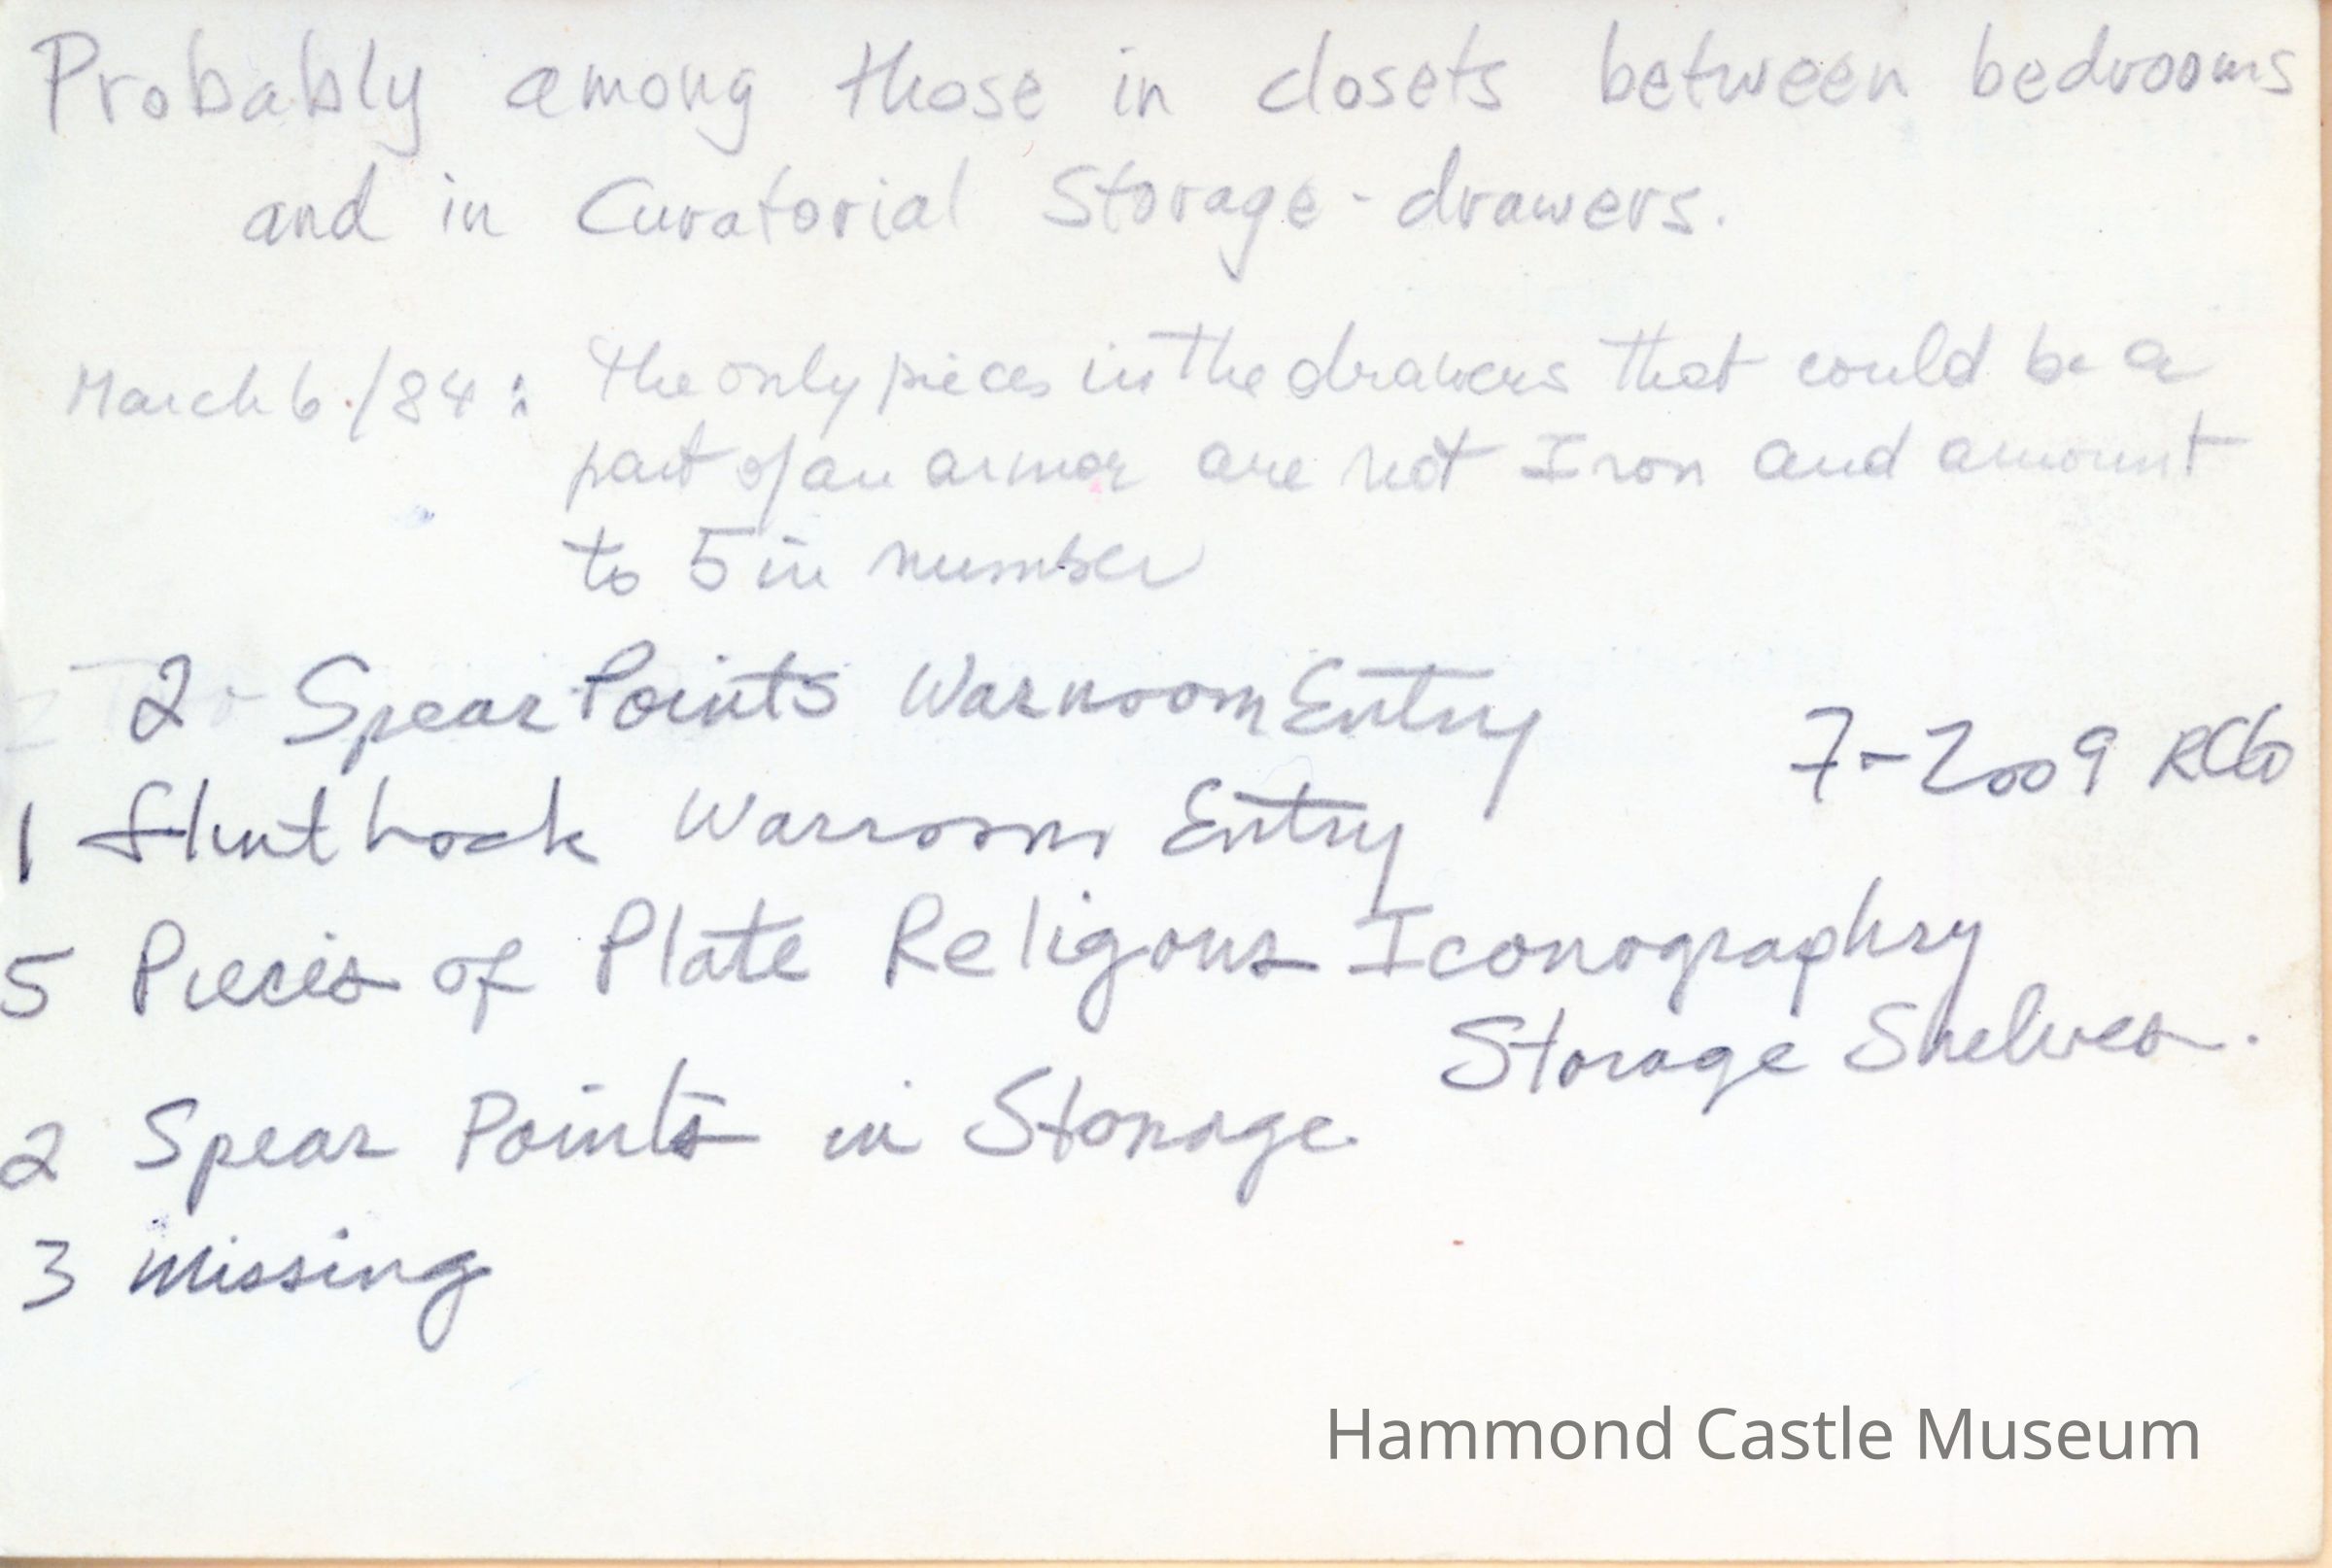 Probably among those in closets between bedrooms
and in Curatorial Storage - drawers.
March 6./84: The only pieces in the drawers that could be a
part of an armor are not Iron and amount
to 5 in number
2 Spear Points Warroom Entry
7-2009
1 flint lock Warroom Entry
5 Pieces of Plate Religous Iconography
Storage Shelves.
2 Spear Points in Storage
3 Missing
Hammond Castle Museum